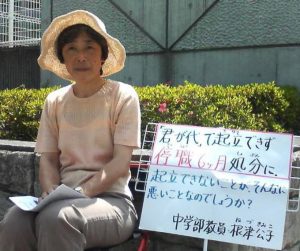 「君が代」で起立できず
停職6ヶ月処分に。
起立できないことが、そんなに
悪いことなのでしょうか?
ねづきみこ
中学部教員・根津公子